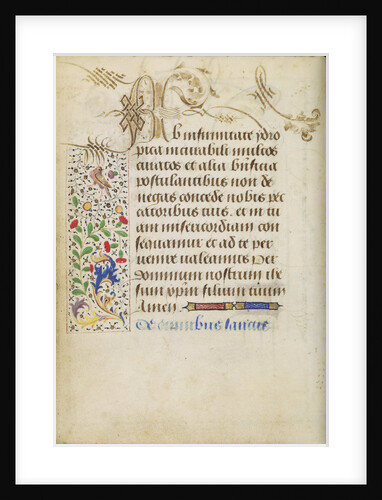 Ab infirmitate ydro
pica mirabili multos
curatos et alia bn̄ficia
postulantibus non de
negas concede nobis pec
catoribus tuis. et in tu
am misericordiam con
sequamur et ad te per
uenire ualeamus Per
dominum nostrum ihe
sum xp̄m filium tuum
Amen
De omnibus sanctis